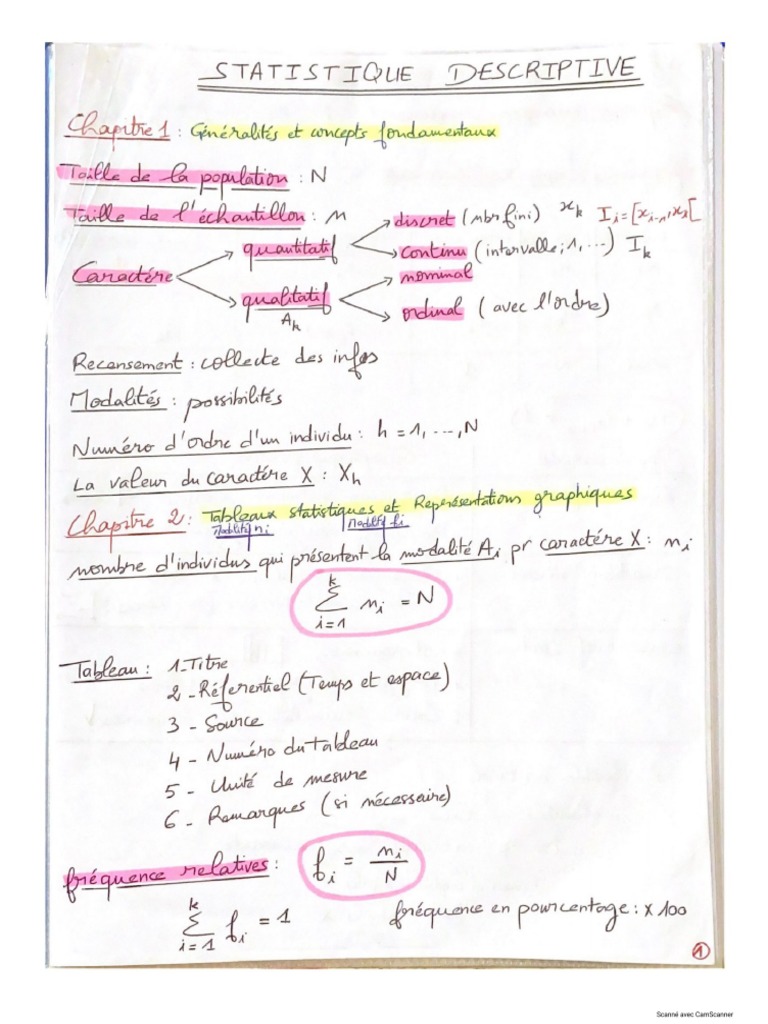 STATISTIQUE DESCRIPTIVE
Chapitre 1 : Généralités et concepts fondamentaux
Taille de la population : N
Taille de l'échantillon : n
Caractére
quantitatif
discret (nbr fini) xₖ Iᵢ = [xᵢ₋₁, xᵢ[
continu (intervalle; 1, ...) Iₖ
qualitatif
Aₖ
nominal
ordinal (avec l'ordre)
Recensement : collecte des infos
Modalités : possibilités
Numéro d'ordre d'un individu : h = 1, ..., N
La valeur du caractére X : Xₕ
Chapitre 2 : Tableaux statistiques et Représentations graphiques
nombre d'individus qui présentent la modalité Aᵢ pr caractére X : nᵢ
k
∑ nᵢ = N
i=1
Tableau : 1_Titre
2 - Réferentiel (Temps et espace)
3 - Source
4 - Numéro du tableau
5 - Unité de mesure
6 - Remarques (si nécessaire)
fréquence relatives : fᵢ = nᵢ / N
k
∑ fᵢ = 1 fréquence en pourcentage : x 100
i=1
1
Scanné avec CamScanner